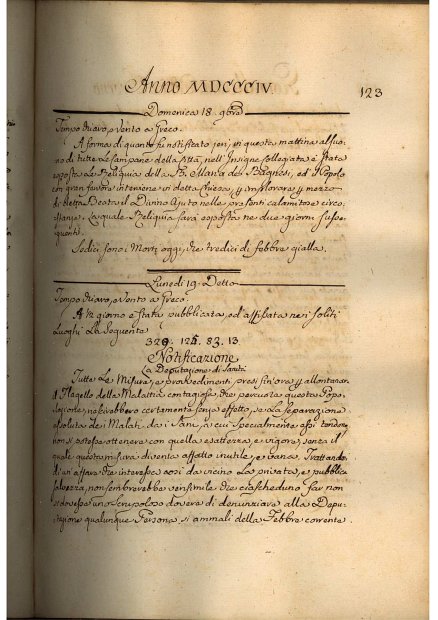 Anno MDCCCIV
123
Domenica 18. 9bre
Tempo chiaro, e Vento a Greco.
A forma di quanto fu notificato jeri, in questa mattina al suo-
no di tutte le Campane della Città, nell'Insigne Collegiata è stata
esposta la Reliquia della B. Maria de' Bagnesi, ed il Popolo
con gran fervore interviene in detta Chiesa, per implorare per mezzo
di detta Beata il Divino Ajuto nelle presenti calamitose circo-
stanze. La quale Reliquia sarà esposta ne' due giorni susse-
guenti.
Sedici sono i Morti oggi, che tredici di febbre gialla.
Lunedì 19. Detto
Tempo chiaro, e Vento a Greco.
A 12 giorno è stata pubblicata, ed affissata nei soliti
Luoghi la seguente
329. 125. 83. 13
Notificazione
La Deputazione di Sanità
Tutte le Misure, e provvedimenti presi fin'ora per allontanare
il Flagello della Malattia contagiosa, che percuote questa Popo-
lazione, riescirebbero certamente senza effetto, se la separazione
assoluta dei Malati, dai Sani, a cui specialmente essi tendono,
non si potesse ottenere con quella esattezza, e vigore, senza il
quale questa misura diventa affatto inutile, e vana. Trattando-
si di un'affare che interessa così da vicino la privata, e pubblica
salvezza, non sembrerebbe verisimile che ciascheduno far non
si dovesse uno scrupoloso dovere di denunziare alla Depu-
tazione qualunque Persona si ammali della Febbre corrente.